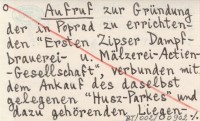 o Aufruf zur Gründung
der in Poprad zu errichten-
den "Ersten Zipser Dampf-
brauerei- u. Mälzerei-Actien-
-Gesellschaft", verbunden mit
dem Ankauf des daselbst
gelegenen "Husz-Parkes" und
dazu gehörenden Liegen-